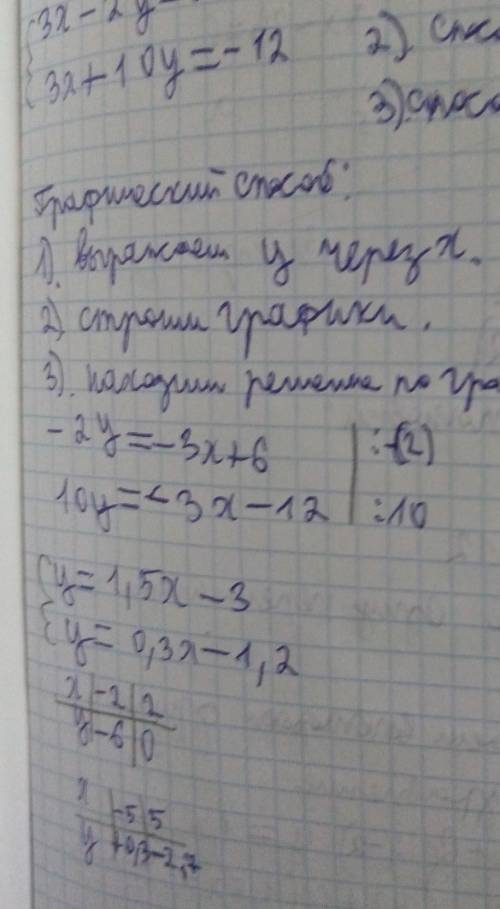 3x - 2y
3x + 10y = -12
2). спос
3). спосо
Графический способ:
1). выражаем y через x.
2) строим графики.
3). находим решение по гра
-2y = -3x + 6 | :(-2)
10y = -3x - 12 | :10
{ y = 1,5x - 3
{ y = 0,3x - 1,2
x | -2 | 2
y | -6 | 0
x | -5 | 5
y | +0,3 | -2,7